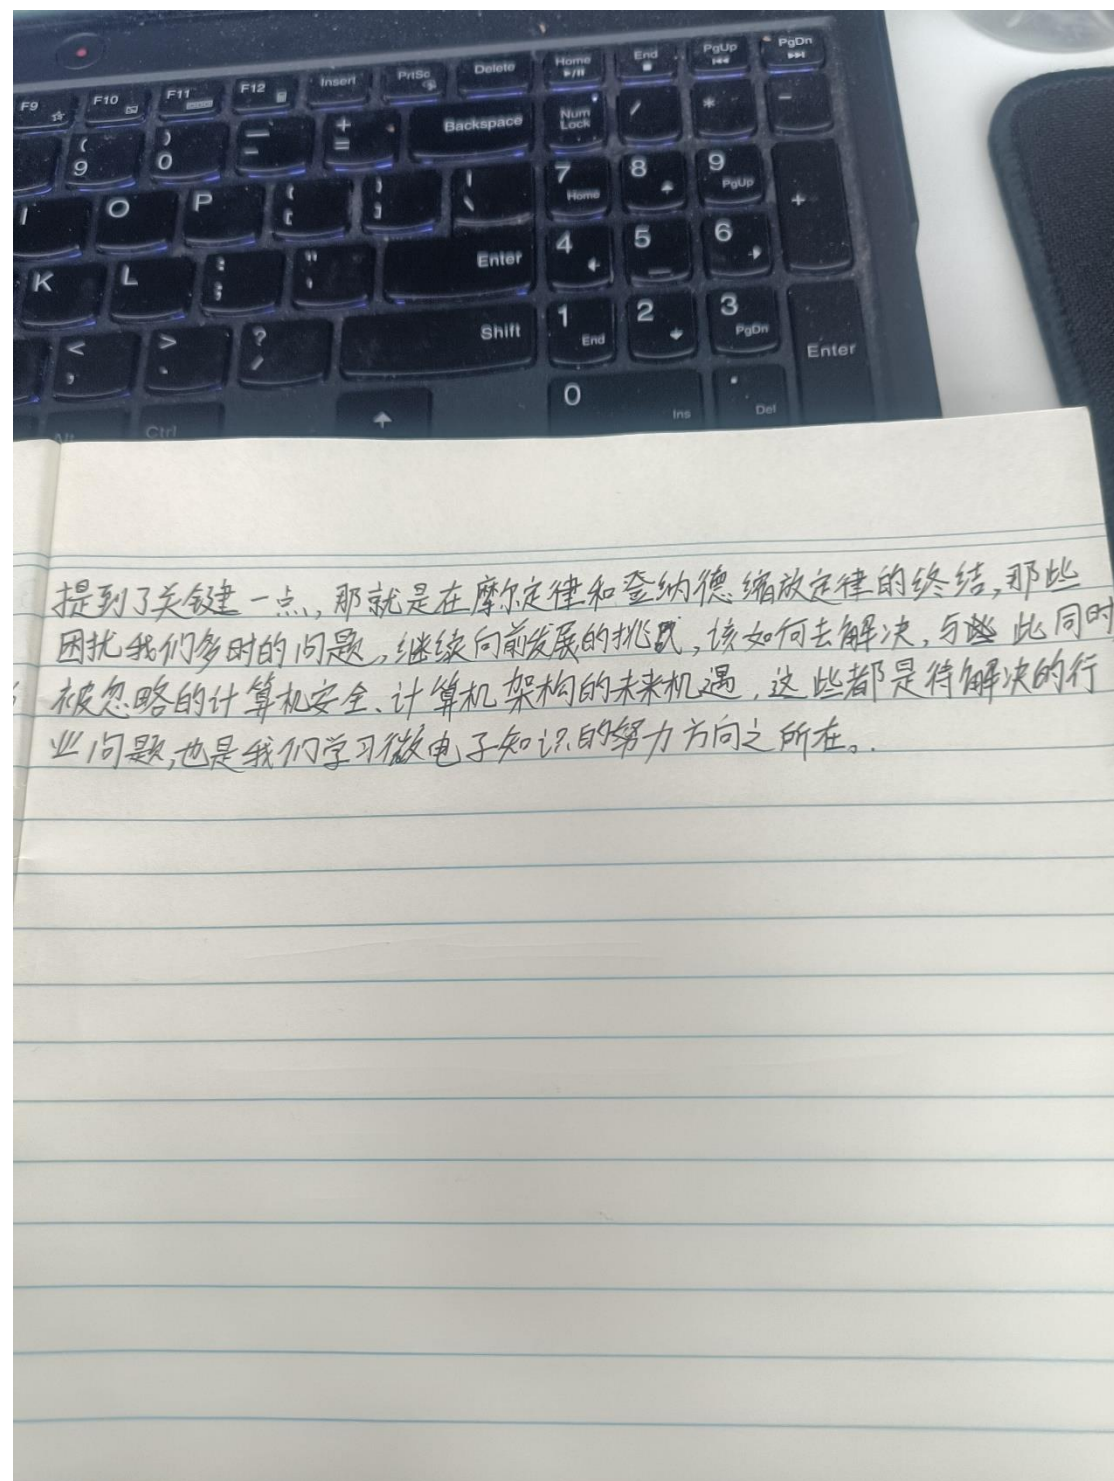 F9 F10 F11 F12 Insert PrtSc Delete Home End PgUp PgDn
( 9 ) 0 — - + = Backspace Num Lock / * -
I O P { [ } ] | \ 7 Home 8 9 PgUp +
K L : ; " ' Enter 4 5 6
< , > . ? / Shift 1 End 2 3 PgDn Enter
Alt Ctrl 0 Ins . Del
提到了关键一点,那就是在摩尔定律和登纳德缩放定律的终结,那些
困扰我们多时的问题,继续向前发展的挑战,该如何去解决,与此同时
被忽略的计算机安全、计算机架构的未来机遇,这些都是待解决的行
业问题,也是我们学习微电子知识的努力方向之所在。